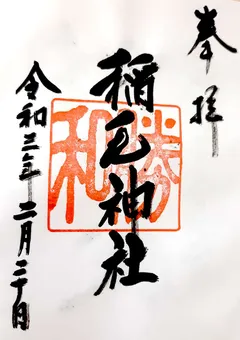 奉拝
稲毛神社
勝和
令和三年二月二十日